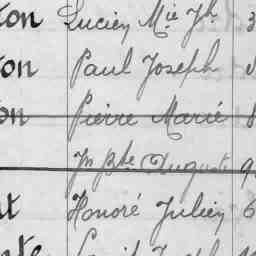 ton Lucien Mie Jh 3
ton Paul Joseph
on Pierre Marie 8
Jn Bte August 9
t Honoré Julien 6